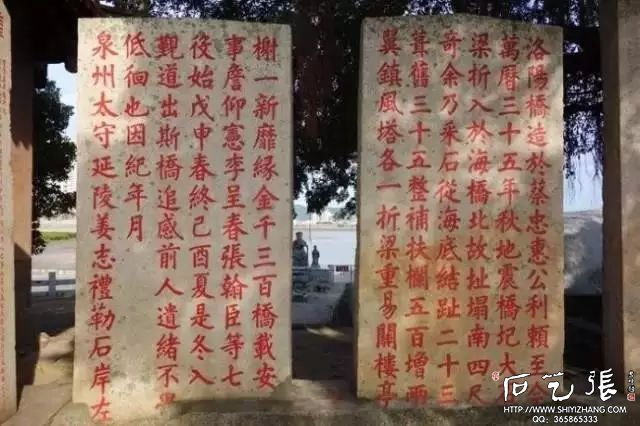 洛陽橋造於蔡忠惠公利賴至今
萬曆三十五年秋地震橋圮大
梁折入於海橋北故址塌南四尺
奇余乃采石從海底結趾二十三
葺舊三十五整補扶欄五百增兩
翼鎮風塔各一折梁重易關樓亭
榭一新靡緣金千三百橋載安
事詹仰憲李呈春張翰臣等七
役始戊申春終己酉夏是冬入
覲道出斯橋追感前人遺緒不
低徊也因紀年月
泉州太守延陵姜志禮勒石岸左
石艺張
HTTP://WWW.SHIYIZHANG.COM
QQ: 365865333